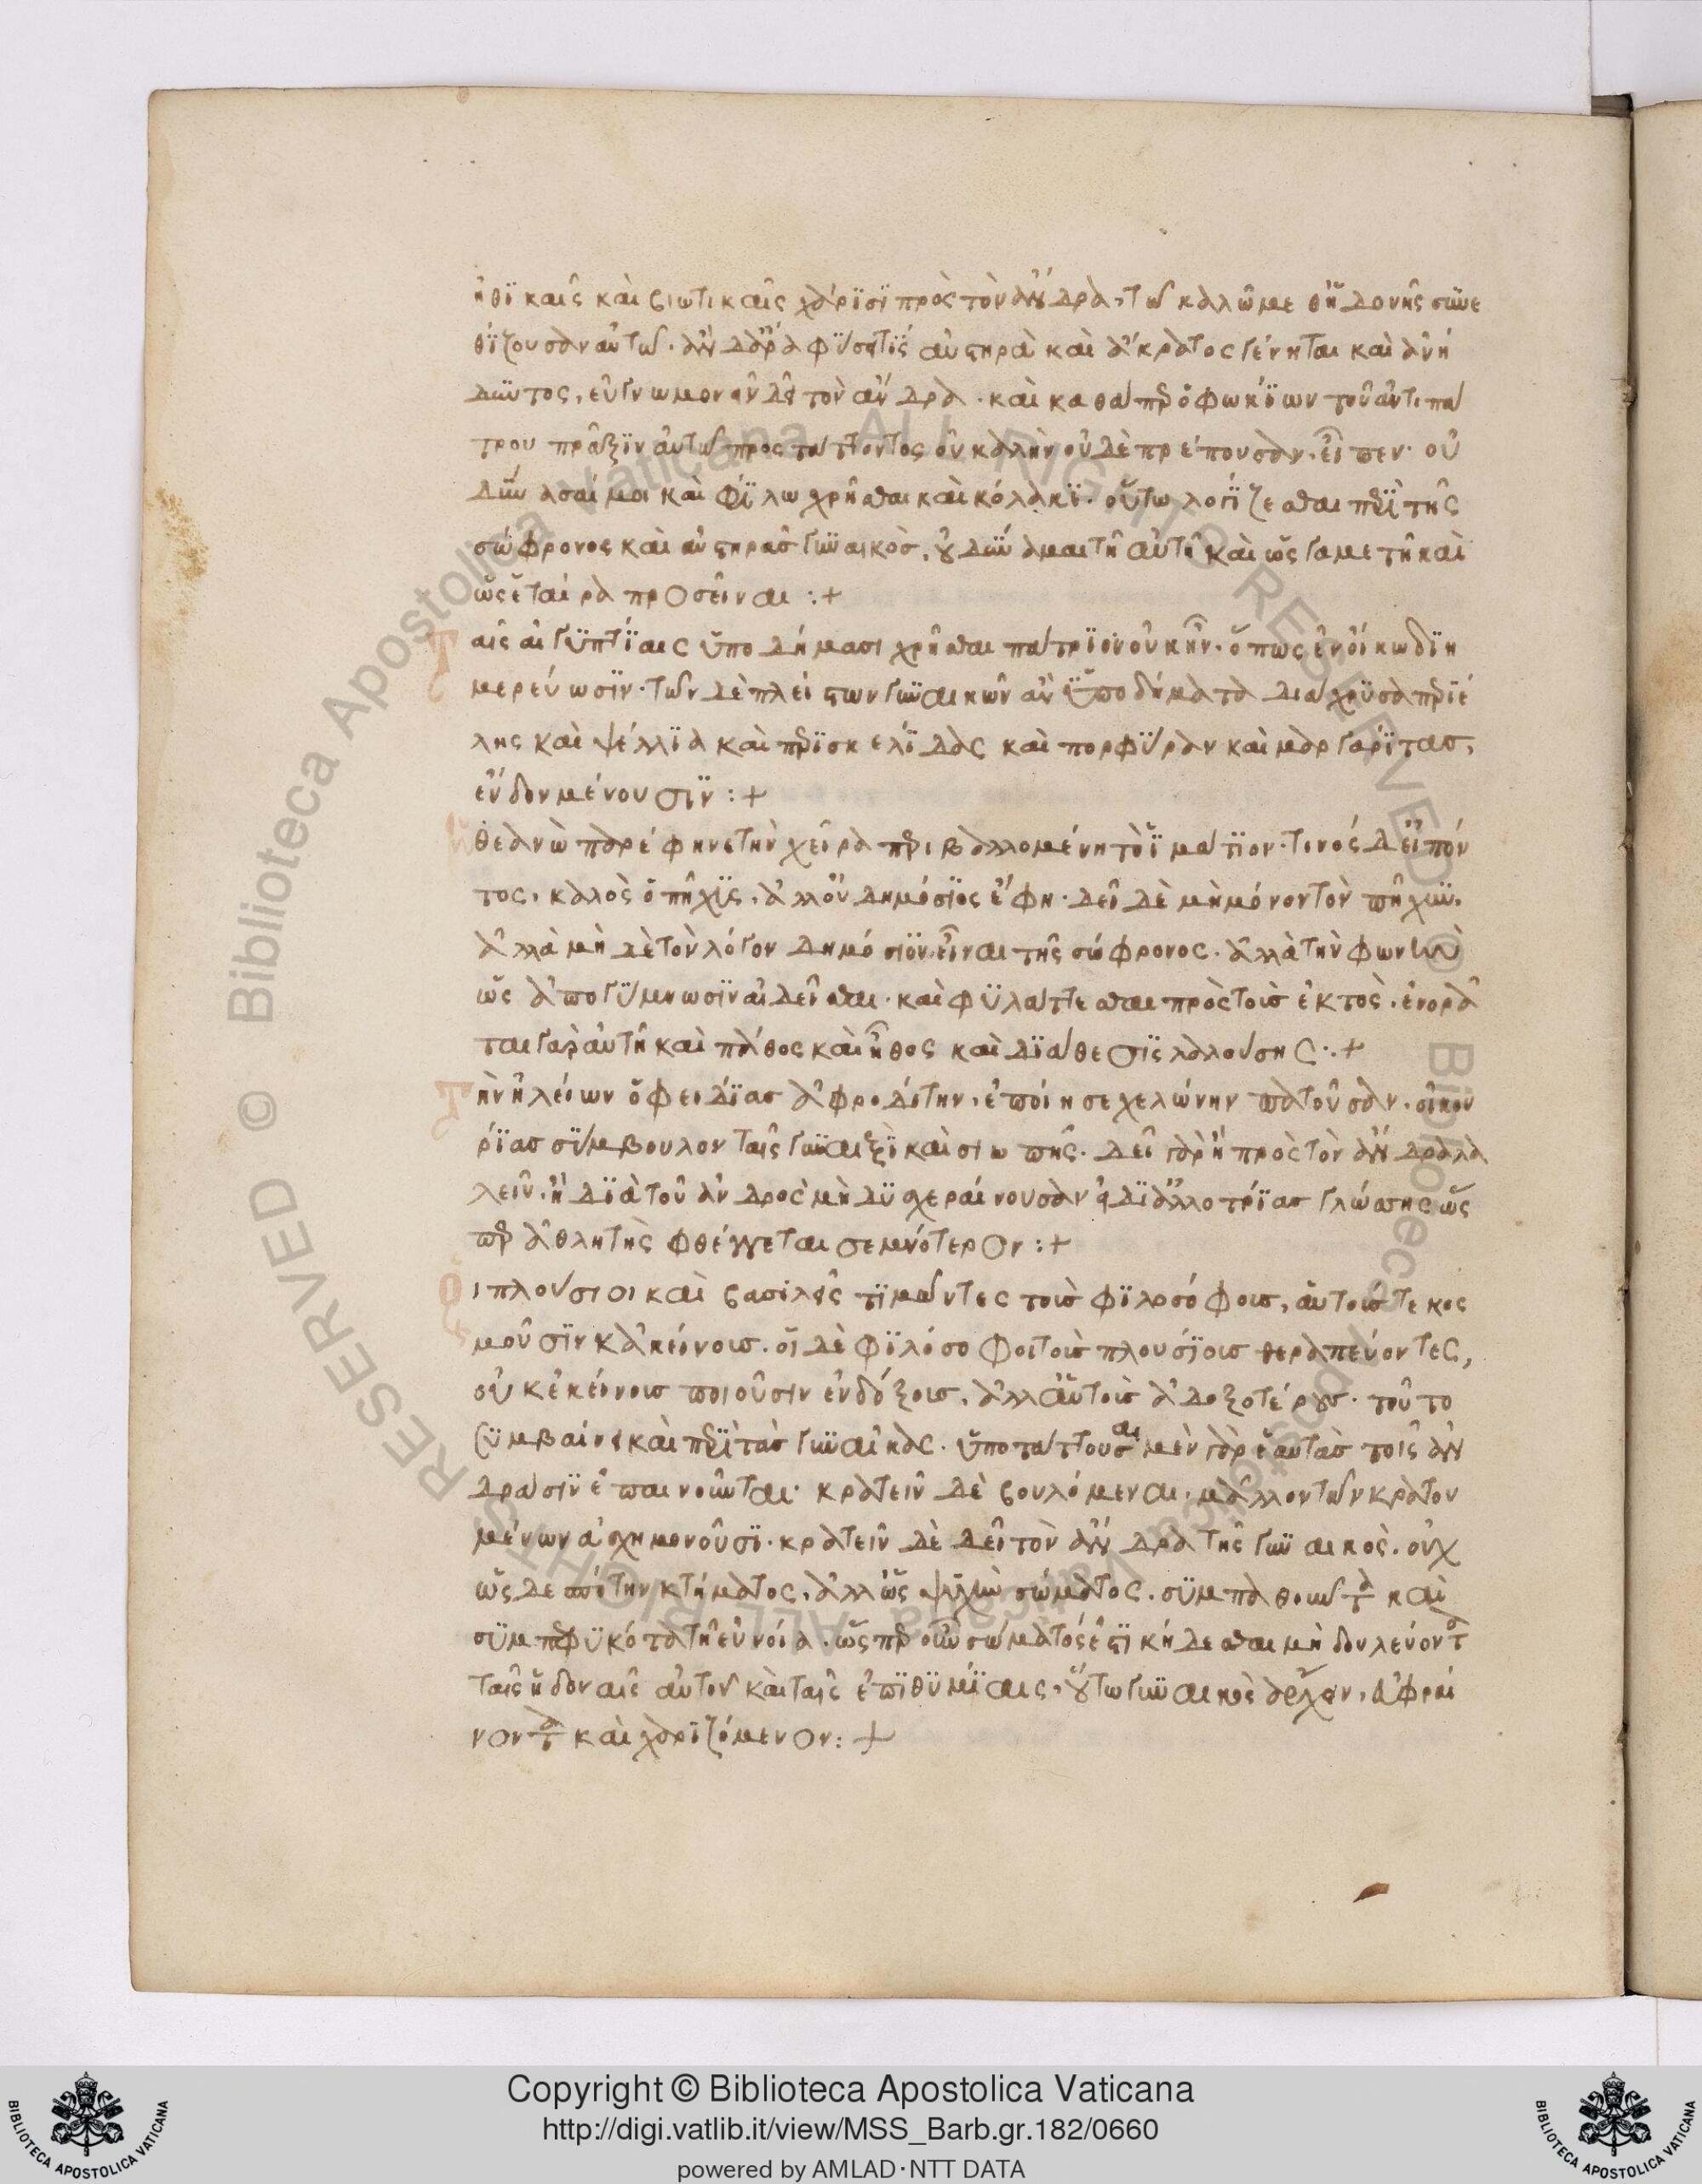 ἠθϊκαῖς καὶ βιωτικαῖς χάρϊσϊ πρὸς τὸν ἄνδρα, τῶ καλῶ μεθ' ἡδονῆς συνε
θΐζουσαν αὐτῶ. ἂν δ' ἄρα φΰσει τϊς αὐστηρὰ καὶ ἄκρατος γένηται καὶ ἀνή
δϋντος, εὐγνωμονεῖν δεῖ τὸν ἄνδρα. καὶ καθάπερ ὁ φωκΐων τοῦ ἀντιπά
τρου πρᾶξϊν αὐτῶ προστάττοντος οὐ καλὴν οὐδὲ πρέπουσαν, εἶπεν. οὐ
δΰνασαί μοι καὶ φΐλω χρῆσθαι καὶ κόλακϊ. οὕτω λογΐζεσθαι περὶ τῆς
σώφρονος καὶ αὐστηρᾶς γυναικὸς, οὐ δΰναμαι τῆ αὐτῆ καὶ ὡς γαμετῆ καὶ
ὡς ἑταίρα προσεῖναι :+
Ταῖς αἰγϋπτΐαις ὑποδήμασι χρῆσθαι πάτρϊον οὐκ ἦν. ὅπως ἐν οἴκω δϊη
μερεύωσϊν. τῶν δὲ πλείστων γυναικῶν ἂν ὑποδήματα διάχρϋσα περϊέ
λης καὶ ψέλλϊα καὶ περϊσκελΐδας καὶ πορφΰραν καὶ μαργαρΐτας,
ἔνδον μένουσϊν :+
Ἡ θεανὼ παρέφηνε τὴν χεῖρα περιβαλλομένη τὸ ἱμάτϊον. τινὸς δ' εἰπόν
τος, καλὸς ὁ πῆχϋς, ἀλλ' οὐ δημόσϊος ἔφη. δεῖ δὲ μὴ μόνον τὸν πῆχυν.
ἀλλὰ μὴ δὲ τὸν λόγον δημόσϊον εἶναι τῆς σώφρονος. ἀλλὰ τὴν φωνὴν
ὡς ἀπογΰμνωσϊν αἰδεῖσθαι. καὶ φϋλάττεσθαι πρὸς τοὺς ἐκτὸς. ἐνορᾶ
ται γὰρ αὐτῆ καὶ πάθος καὶ ἦθος καὶ δϊάθεσϊς λαλούσης :+
Τὴν ἠλείων ὁ φειδΐας ἀφροδίτην, ἐποίησε χελώνην πατοῦσαν, οἰκου
ρΐας σΰμβουλον ταῖς γυναιξὶ καὶ σιωπῆς. δεῖ γὰρ ἢ πρὸς τὸν ἄνδρα λα
λεῖν, ἢ δϊὰ τοῦ ἀνδρος μὴ δϋσχεραίνουσαν εἰ δϊ' ἀλλοτρΐας γλώσσης ὡς
περ ἀθλητὴς φθέγγεται σεμνότερον :+
Οἱ πλούσιοι καὶ βασιλεῖς τϊμῶντες τοὺς φϊλοσόφους, αὐτούς τε κοσ
μοῦσϊν κἀκείνους. οἱ δὲ φϊλόσοφοι τοὺς πλουσΐους θεραπεύοντες,
οὐκ ἐκείνους ποιοῦσιν ἐνδόξους, ἀλλ' αὑτοὺς ἀδοξοτέρους. τοῦτο
σϋμβαίνει καὶ περὶ τὰς γυναῖκας. ὑποτάττουσαι μὲν γὰρ ἑαυτὰς τοῖς ἀν
δράσϊν ἐπαινοῦνται. κρατεῖν δὲ βουλόμεναι, μᾶλλον τῶν κρατου
μένων ἀσχημονοῦσϊ. κρατεῖν δὲ δεῖ τὸν ἄνδρα τῆς γυναικὸς. οὐχ
ὡς δεσπότην κτήματος, ἀλλ' ὡς ψϋχὴν σώματος. σϋμπαθοῦντα καὶ
σϋμπεφϋκότα τῆ εὐνοία. ὥσπερ οὖν σώματός ἐστϊ κήδεσθαι μὴ δουλεύοντα
ταῖς ἡδοναῖς αὐτοῦ καὶ ταῖς ἐπϊθϋμΐαις, οὕτω γυναικὸς ἄρχειν, εὐφραί
νοντα καὶ χαρϊζόμενον :+
Copyright © Biblioteca Apostolica Vaticana
http://digi.vatlib.it/view/MSS_Barb.gr.182/0660
powered by AMLAD·NTT DATA